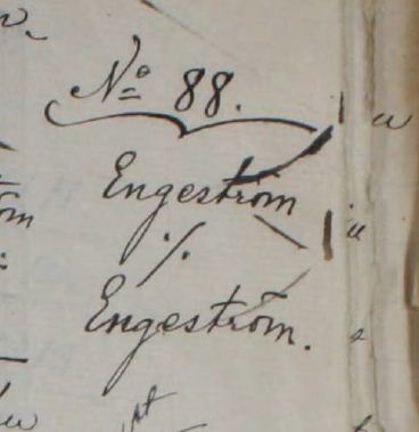 No 88.
Engeström
./.
Engeström.